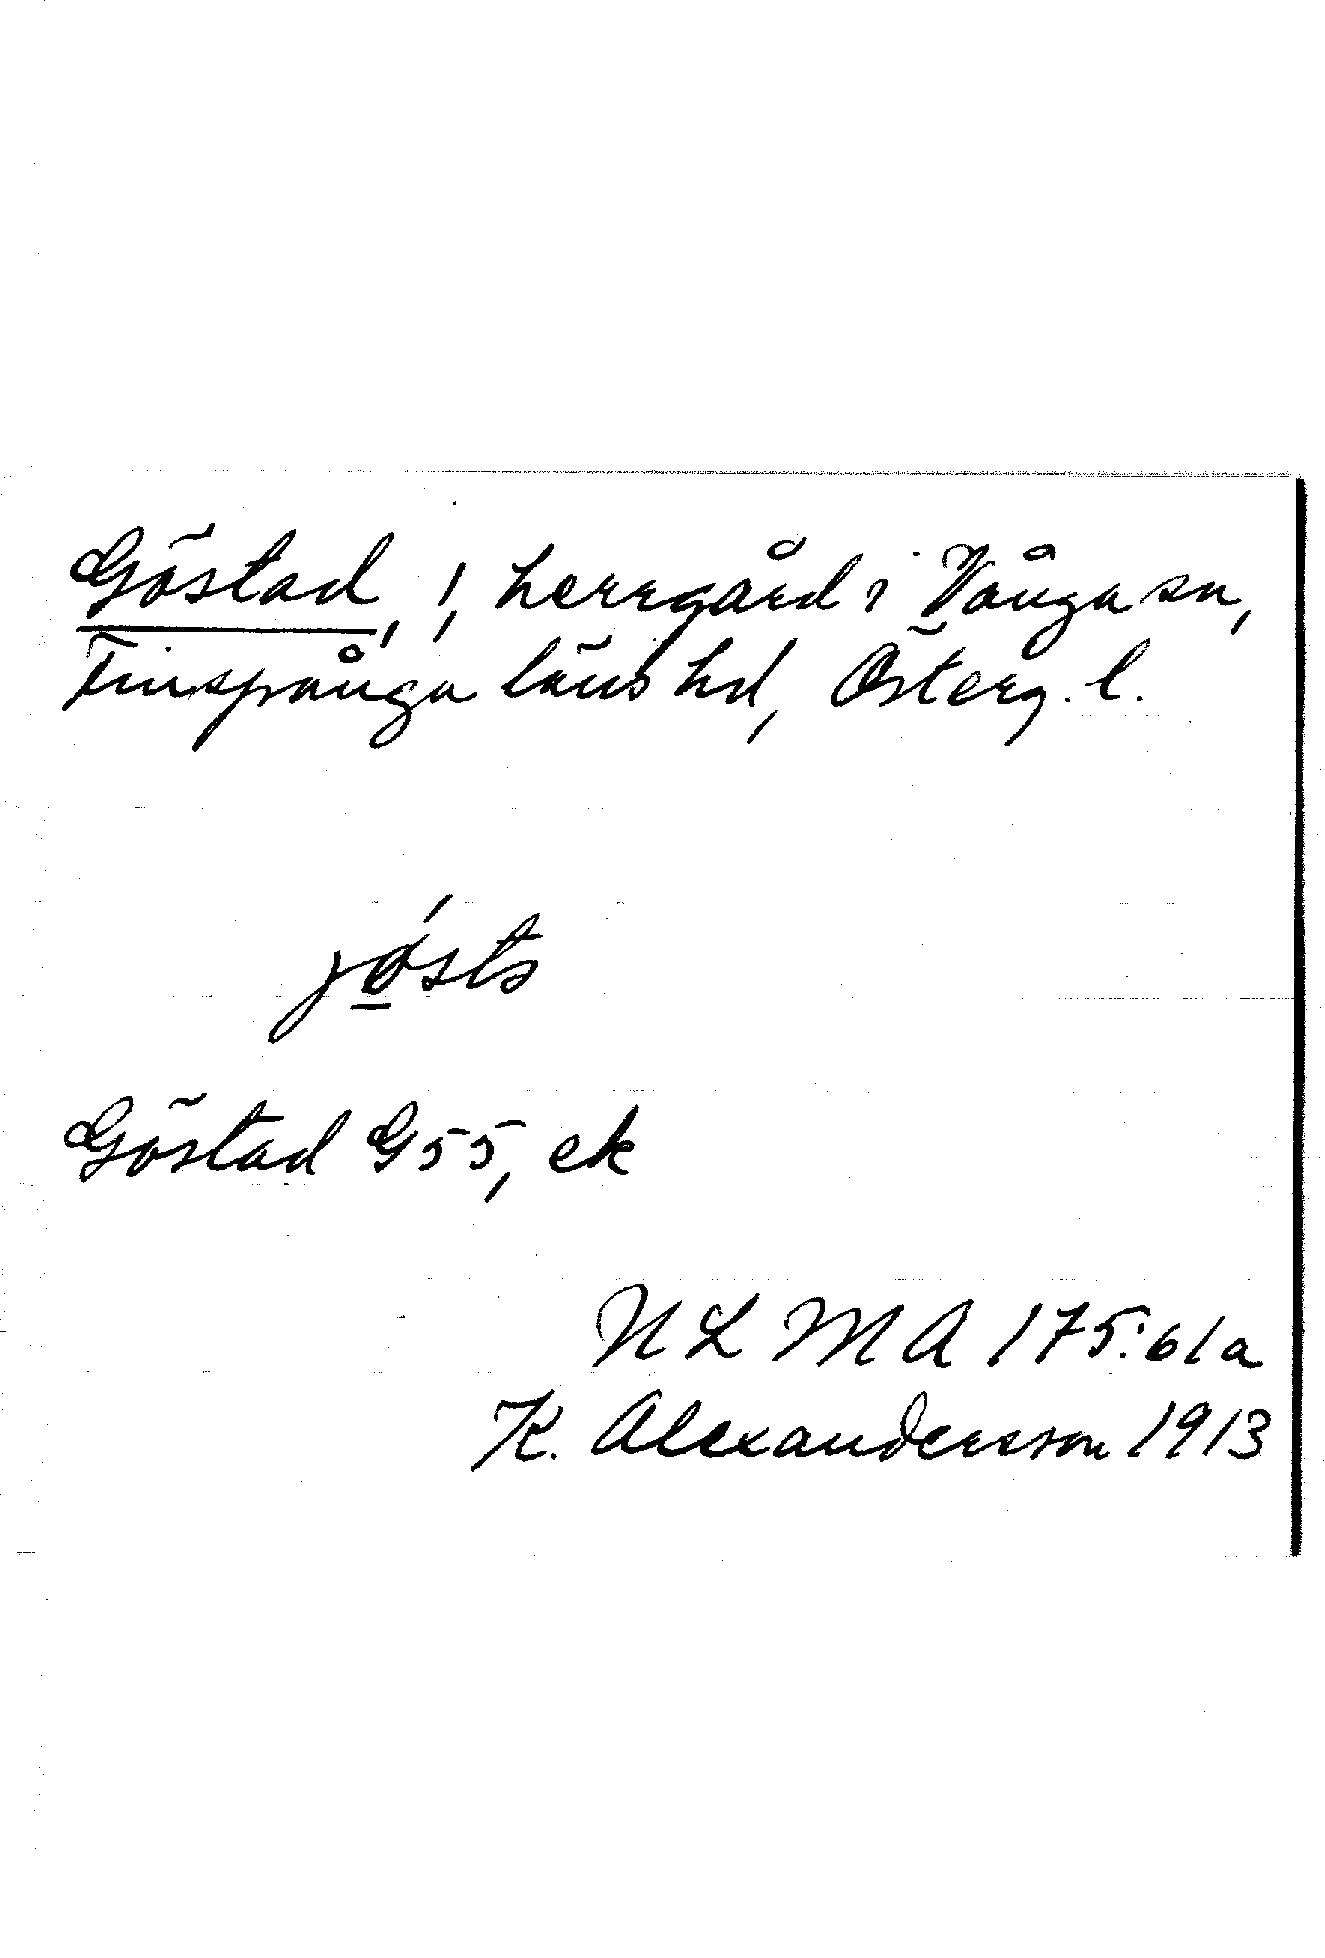 Göstad, !, herrgård i Vånga sn,
Finspånga läns hd, Österg. l.
jǿ̲sta
Göstad G55, ek
NLMA 175:61a
K. Alexandersson 1913